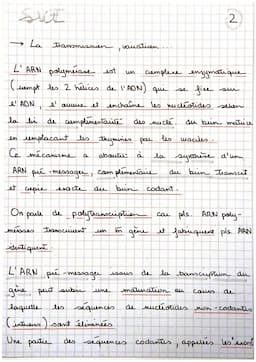 Suite
2
→ La transmission, variation...
L'ARN polymérase est un complexe enzymatique
(rompt les 2 hélices de l'ADN) qui se fixe sur
l'ADN, l'ouvre et enchaîne les nucléotides selon
la loi de complémentarité des nuclé du brin matrice
en remplaçant les thymines par les uraciles.
Ce mécanisme a aboutit à la synthèse d'un
ARN pré-messager, complémentaire du brin transcrit
et copie exacte du brin codant.
On parle de polytranscription car pls. ARN poly-
mérases transcrivent un m̂ gène et fabriquent pls ARN
identiques.
L'ARN pré-messager issus de la transcription du
gène peut subir une maturation au cours de
laquelle les séquences de nucléotides non-codantes
(introns) sont éliminées.
Une partie des séquences codantes, appelées les